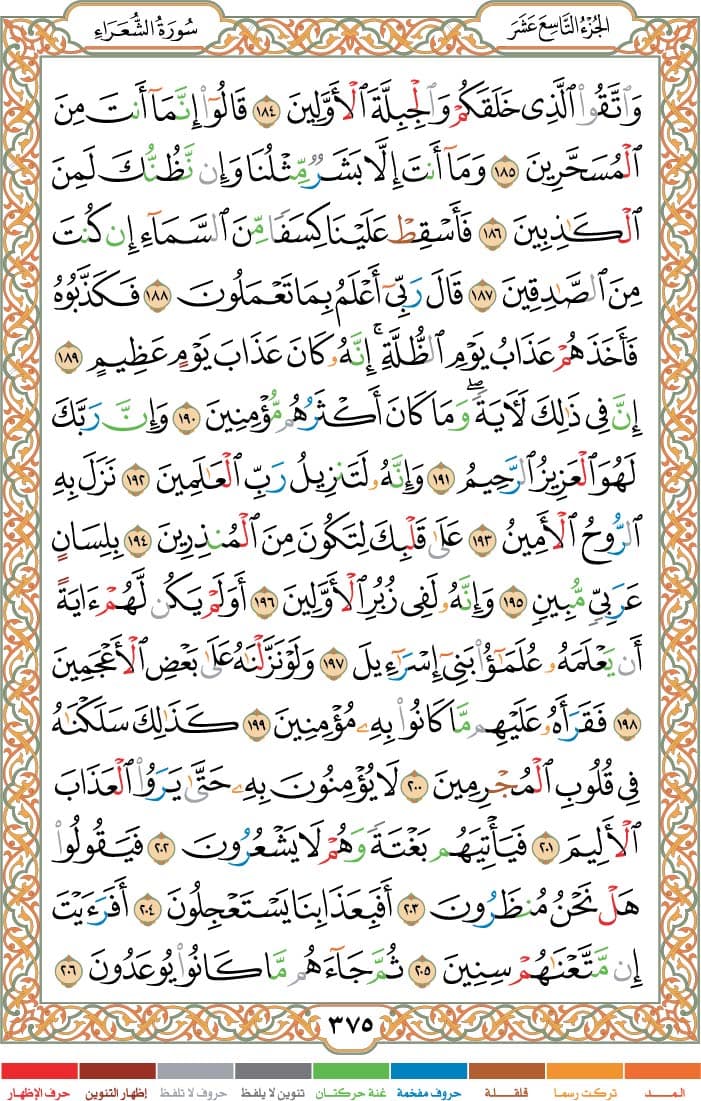 الجُزْءُ التَّاسِعَ عَشَرَ
سُورَةُ الشُّعَرَاءِ
وَٱتَّقُوا۟ ٱلَّذِى خَلَقَكُمْ وَٱلْجِبِلَّةَ ٱلْأَوَّلِينَ ١٨٤ قَالُوٓا۟ إِنَّمَآ أَنتَ مِنَ
ٱلْمُسَحَّرِينَ ١٨٥ وَمَآ أَنتَ إِلَّا بَشَرٌ مِّثْلُنَا وَإِن نَّظُنُّكَ لَمِنَ
ٱلْكَٰذِبِينَ ١٨٦ فَأَسْقِطْ عَلَيْنَا كِسَفًا مِّنَ ٱلسَّمَآءِ إِن كُنتَ
مِنَ ٱلصَّٰدِقِينَ ١٨٧ قَالَ رَبِّىٓ أَعْلَمُ بِمَا تَعْمَلُونَ ١٨٨ فَكَذَّبُوهُ
فَأَخَذَهُمْ عَذَابُ يَوْمِ ٱلظُّلَّةِ ۚ إِنَّهُۥ كَانَ عَذَابَ يَوْمٍ عَظِيمٍ ١٨٩
إِنَّ فِى ذَٰلِكَ لَءَايَةً ۖ وَمَا كَانَ أَكْثَرُهُم مُّؤْمِنِينَ ١٩٠ وَإِنَّ رَبَّكَ
لَهُوَ ٱلْعَزِيزُ ٱلرَّحِيمُ ١٩١ وَإِنَّهُۥ لَتَنزِيلُ رَبِّ ٱلْعَٰلَمِينَ ١٩٢ نَزَلَ بِهِ
ٱلرُّوحُ ٱلْأَمِينُ ١٩٣ عَلَىٰ قَلْبِكَ لِتَكُونَ مِنَ ٱلْمُنذِرِينَ ١٩٤ بِلِسَانٍ
عَرَبِىٍّ مُّبِينٍ ١٩٥ وَإِنَّهُۥ لَفِى زُبُرِ ٱلْأَوَّلِينَ ١٩٦ أَوَلَمْ يَكُن لَّهُمْ ءَايَةً
أَن يَعْلَمَهُۥ عُلَمَٰٓؤُا۟ بَنِىٓ إِسْرَٰٓءِيلَ ١٩٧ وَلَوْ نَزَّلْنَٰهُ عَلَىٰ بَعْضِ ٱلْأَعْجَمِينَ
١٩٨ فَقَرَأَهُۥ عَلَيْهِم مَّا كَانُوا۟ بِهِۦ مُؤْمِنِينَ ١٩٩ كَذَٰلِكَ سَلَكْنَٰهُ
فِى قُلُوبِ ٱلْمُجْرِمِينَ ٢٠٠ لَا يُؤْمِنُونَ بِهِۦ حَتَّىٰ يَرَوُا۟ ٱلْعَذَابَ
ٱلْأَلِيمَ ٢٠١ فَيَأْتِيَهُم بَغْتَةً وَهُمْ لَا يَشْعُرُونَ ٢٠٢ فَيَقُولُوا۟
هَلْ نَحْنُ مُنظَرُونَ ٢٠٣ أَفَبِعَذَابِنَا يَسْتَعْجِلُونَ ٢٠٤ أَفَرَءَيْتَ
إِن مَّتَّعْنَٰهُمْ سِنِينَ ٢٠٥ ثُمَّ جَآءَهُم مَّا كَانُوا۟ يُوعَدُونَ ٢٠٦
٣٧٥
المـــد تركت رسما قلقـلة حروف مفخمة غنة حركتان تنوين لا يلفظ حروف لا تلفظ إظهار التنوين حرف الإظهار